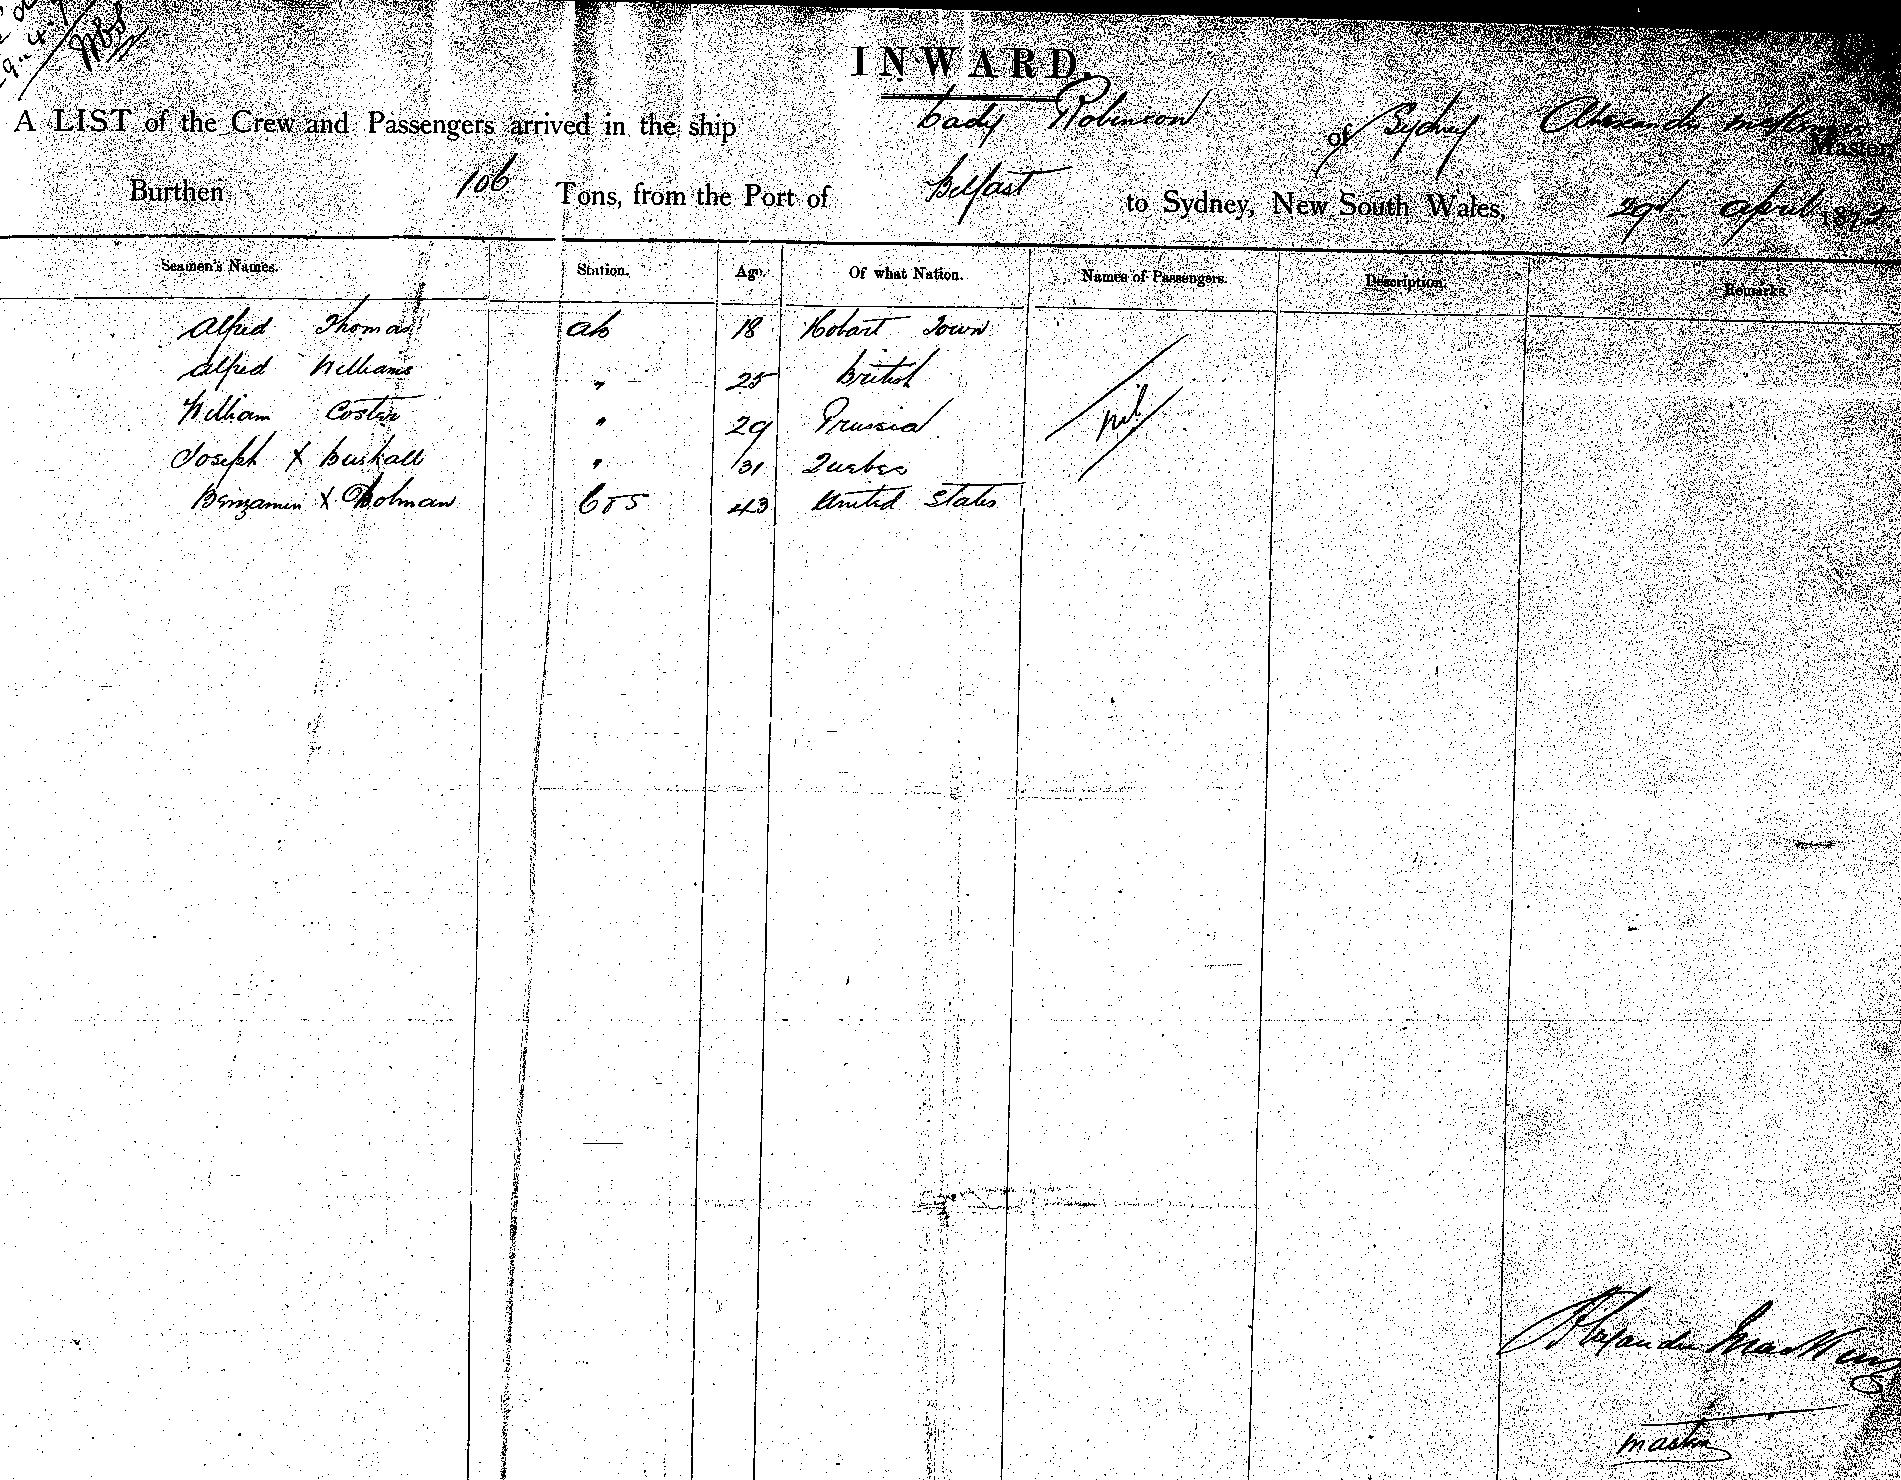 INWARD.
A LIST of the Crew and Passengers arrived in the ship Lady Robinson of Sydney Alexander McKenzie Master
Burthen 106 Tons, from the Port of Belfast to Sydney, New South Wales, 29th April 1872
Seamen's Names. Station. Age. Of what Nation. Names of Passengers. Description. Remarks.
Alfred Thomas ab 18 Hobart Town
Alfred Williams " 25 British
William Coster " 29 Prussia nil
Joseph X Buskall " 31 Quebec
Benjamin X Holman C & S 43 United States
Alexander MacKenzie
master